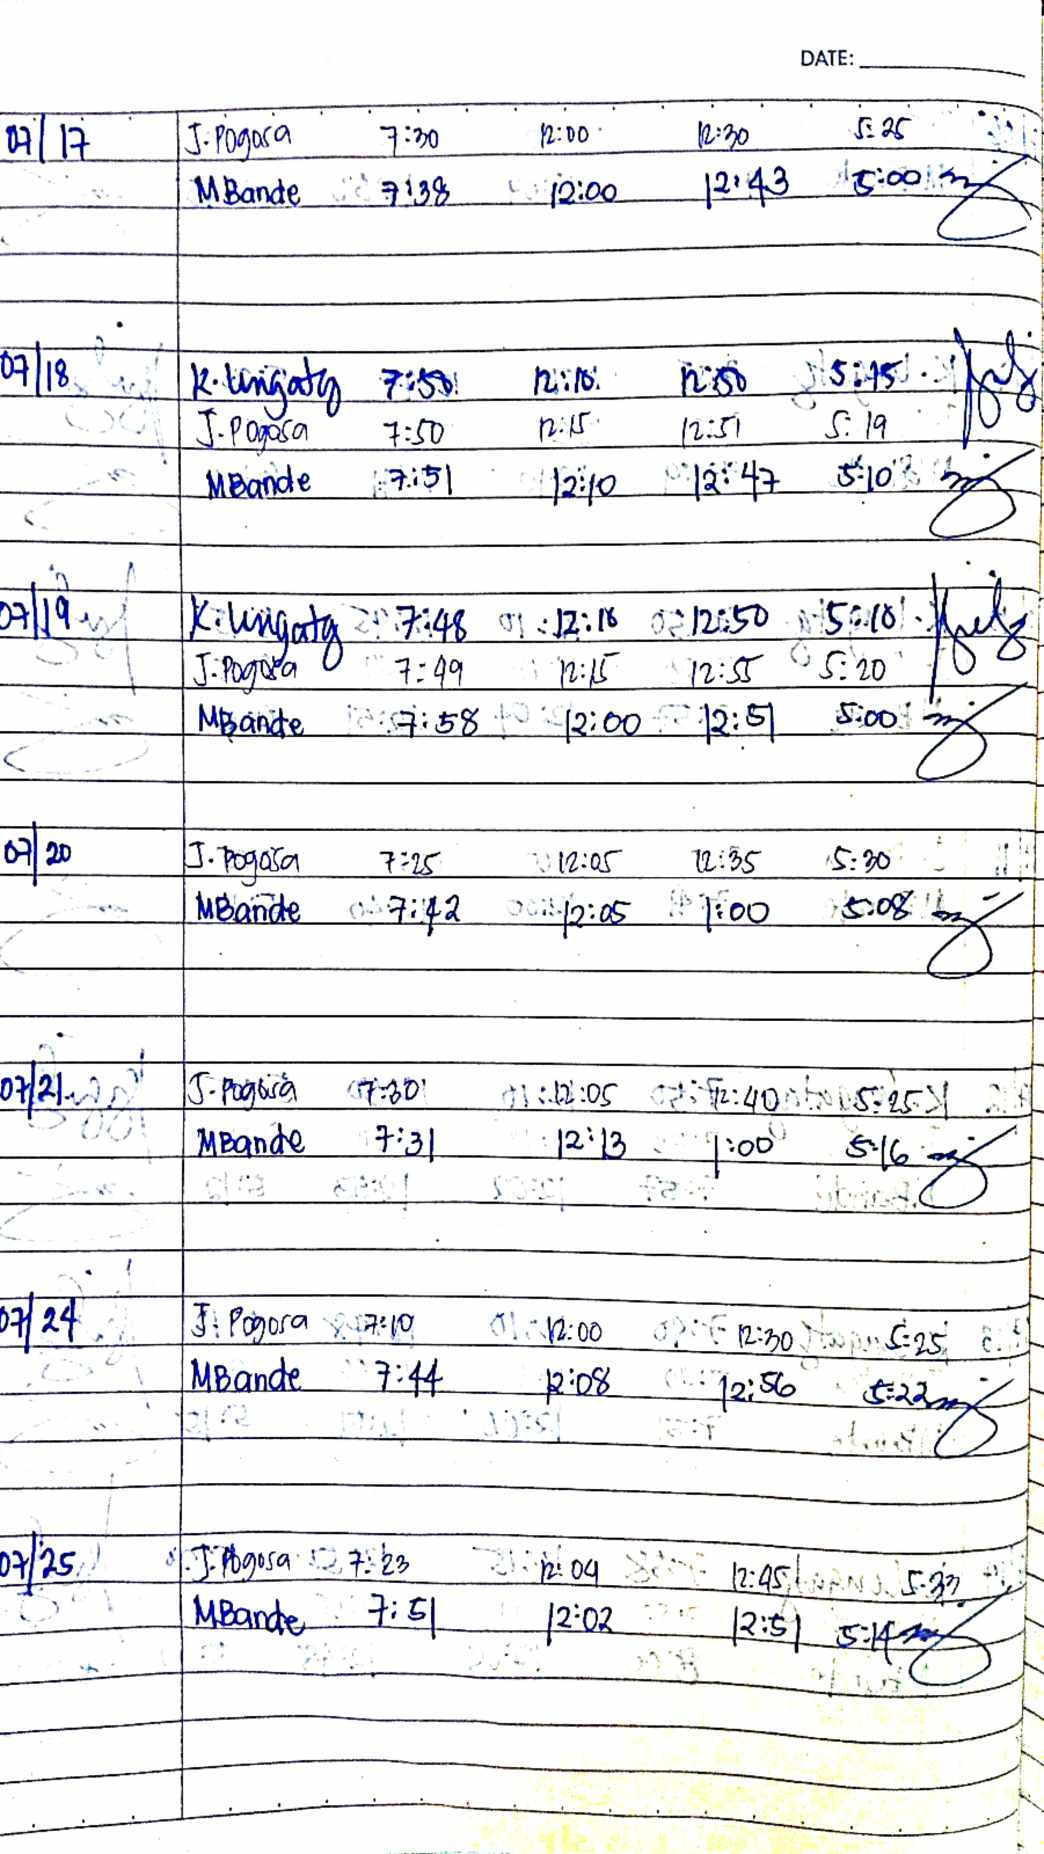 DATE:
07/17 J. Pogosa 7:30 12:00 12:30 5:25
MBande 7:38 12:00 12:43 5:00
07/18 K. Lingatg 7:50 12:10 12:50 5:15
J. Pogosa 7:50 12:15 12:51 5:19
MBande 7:51 12:10 12:47 5:10
07/19 K. Lingatg 7:48 12:10 12:50 5:10
J. Pogosa 7:49 12:15 12:55 5:20
MBande 7:58 12:00 12:51 5:00
07/20 J. Pogosa 7:25 12:05 12:35 5:30
MBande 7:42 12:05 1:00 5:08
07/21 J. Pogosa 7:30 12:05 12:40 5:25
MBande 7:31 12:13 1:00 5:16
07/24 J. Pogosa 7:10 12:00 12:30 5:25
MBande 7:44 12:08 12:56 5:22
07/25 J. Pogosa 7:23 12:04 12:45
MBande 7:51 12:02 12:51 5:14